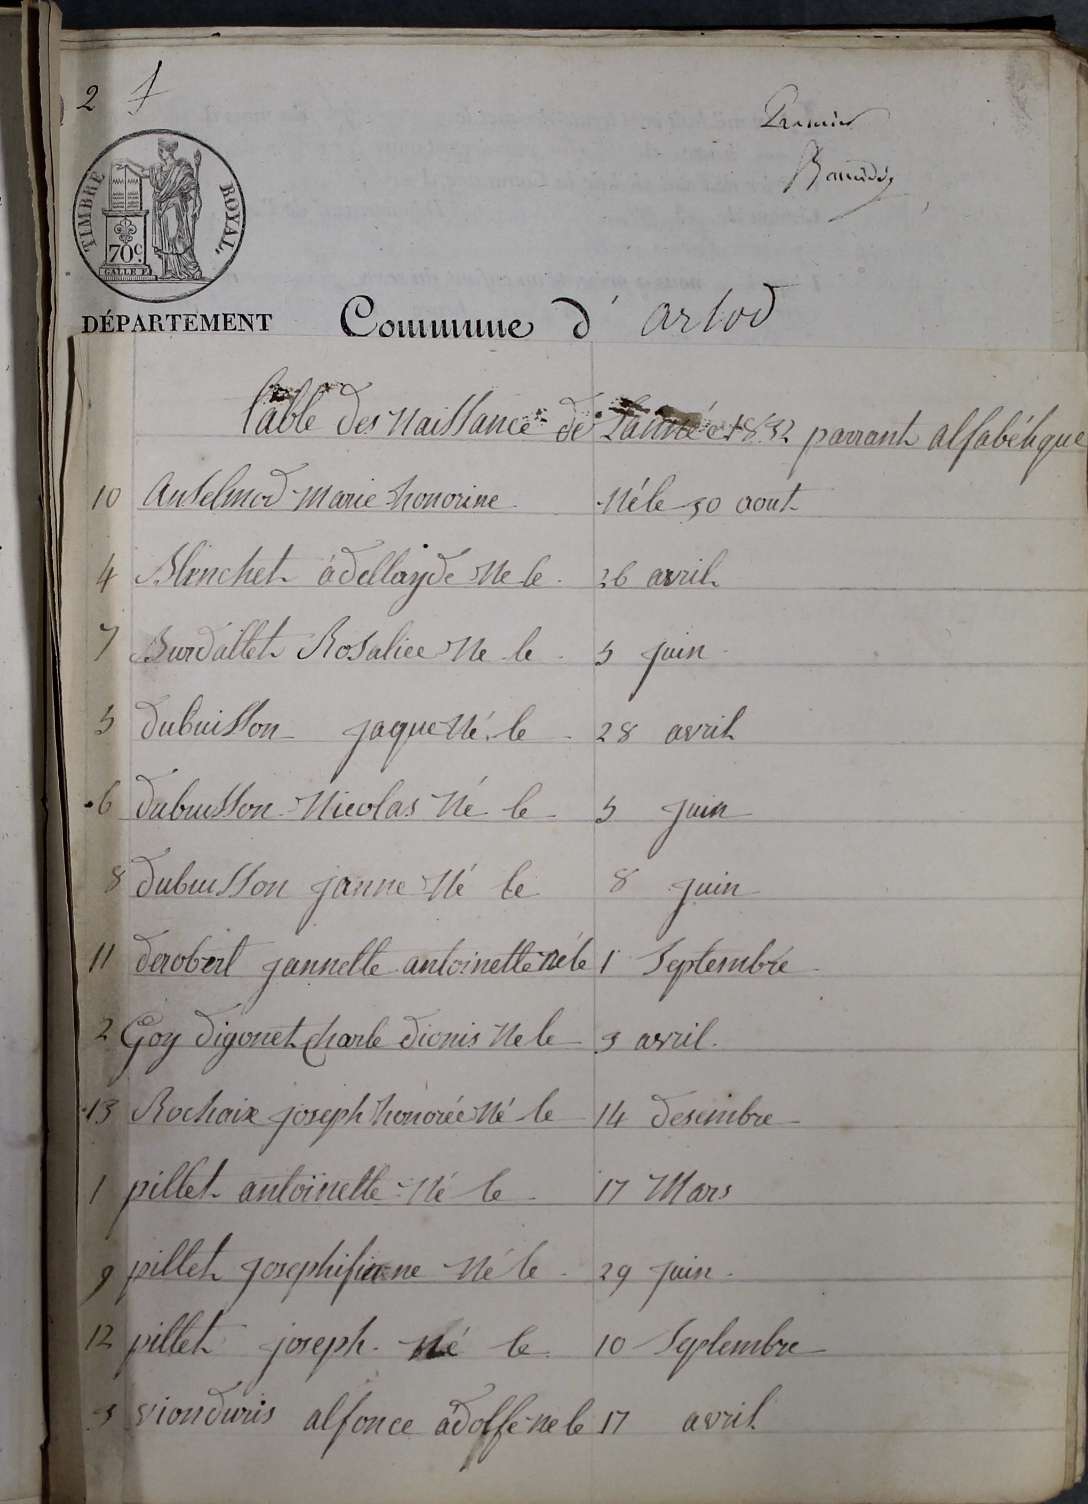 2
Premier
TIMBRE ROYAL
70 c.
GALLE F.
DÉPARTEMENT Commune d' arlod
table des Naissance de Lannée 1832 parrant alfabétique
10 anselmod marie honorine Né le 30 aout
4 Blenchet adellayde Ne le 26 avril
7 Burdallet Rosaliee Ne le 5 juin
5 dubuisson jaque Né le 28 avril
6 dubuisson Nicolas Né le 5 juin
8 dubuisson janne Né le 8 juin
11 derobert jannette antoinette né le 1 Septembre
2 Goy digonet charle dionis Ne le 3 avril
13 Rochaix joseph honorée Né le 14 desembre
1 pillet antoinette Né le 17 Mars
9 pillet Né le 29 juin
12 pillet joseph Né le 10 Septembre
3 vionduris alfonce adolfe ne le 17 avril